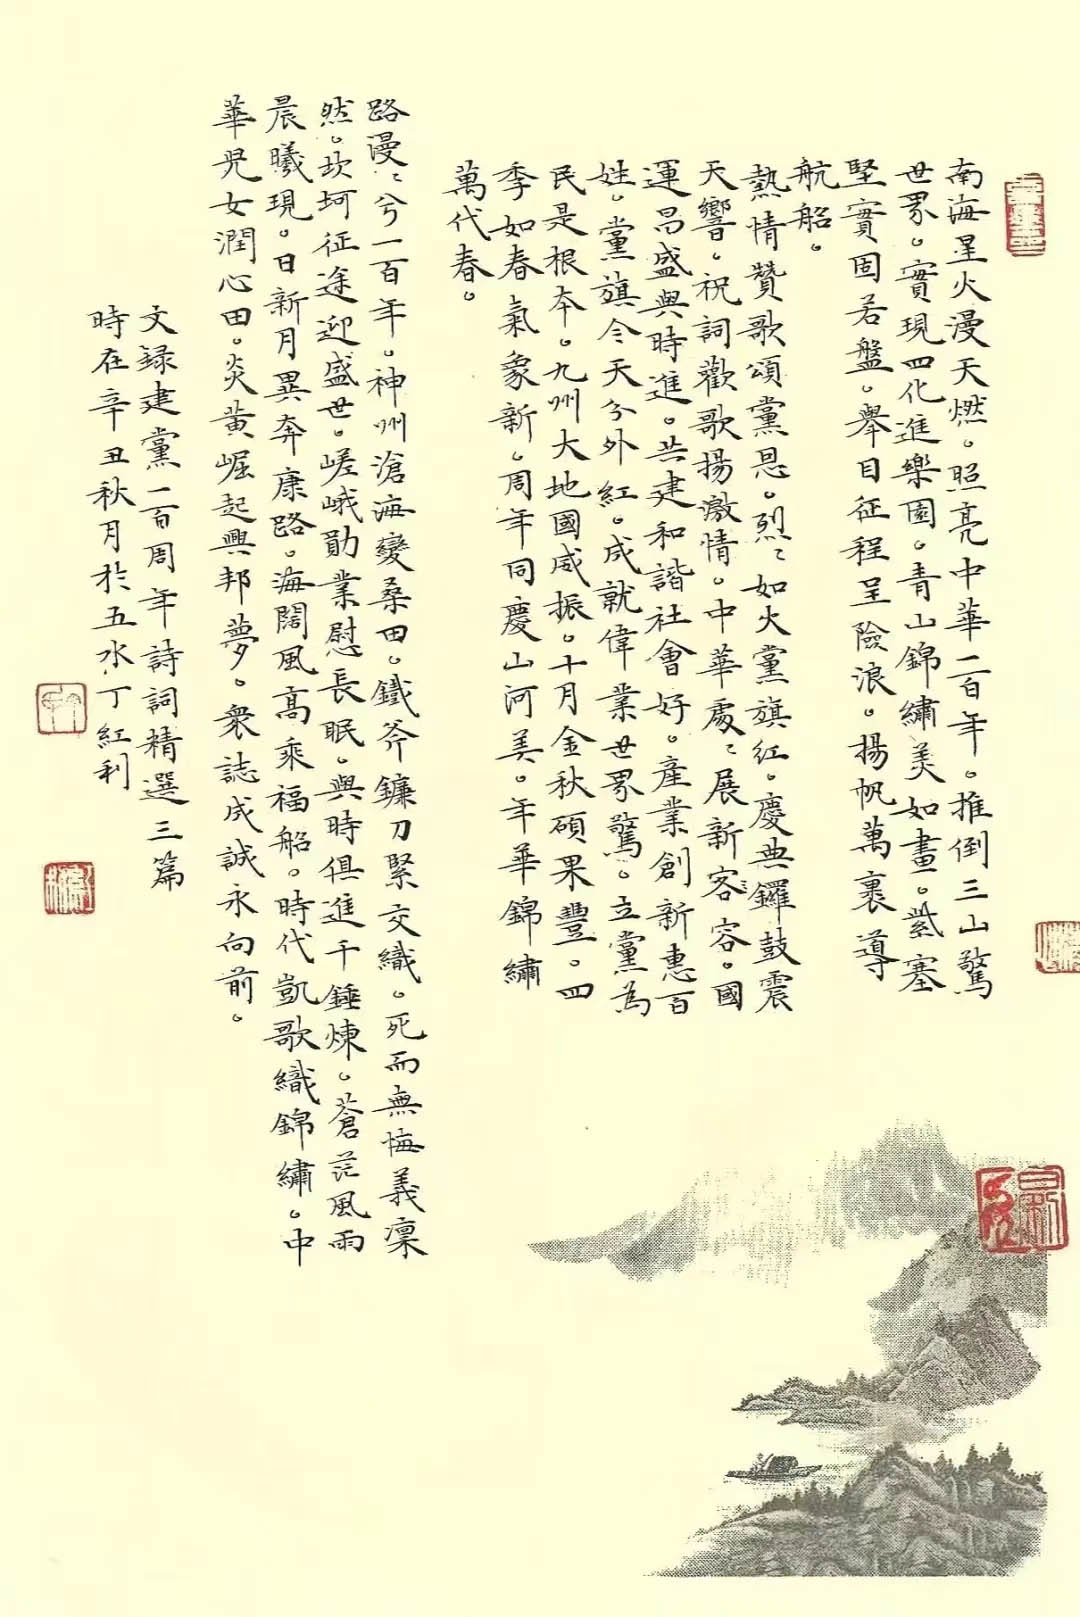 南海星火漫天燃。照亮中華一百年。推倒三山驚
世界。實現四化進樂園。青山錦繡美如畫。紫塞
堅實固若盤。舉目征程呈險浪。揚帆萬裏導
航船。
熱情贊歌頌黨恩。烈〻如火黨旗紅。慶典鑼鼓震
天響。祝詞歡歌揚激情。中華處〻展新客容。國
運昌盛與時進。共建和諧社會好。產業創新惠百
姓。黨旗今天分外紅。成就偉業世界驚。立黨為
民是根本。九州大地國威振。十月金秋碩果豐。四
季如春氣象新。周年同慶山河美。年華錦繡
萬代春。
路漫〻兮一百年。神州滄海變桑田。鐵斧鐮刀緊交織。死而無悔義凜
然。坎坷征途迎盛世。嵯峨勛業慰長眠。與時俱進千錘煉。蒼茫風雨
晨曦現。日新月異奔康路。海闊風高乘福船。時代凱歌織錦繡。中
華兒女潤心田。炎黃崛起興邦夢。衆誌成誠永向前。
文録建黨一百周年詩詞精選三篇
時在辛丑秋月於五水丁紅利